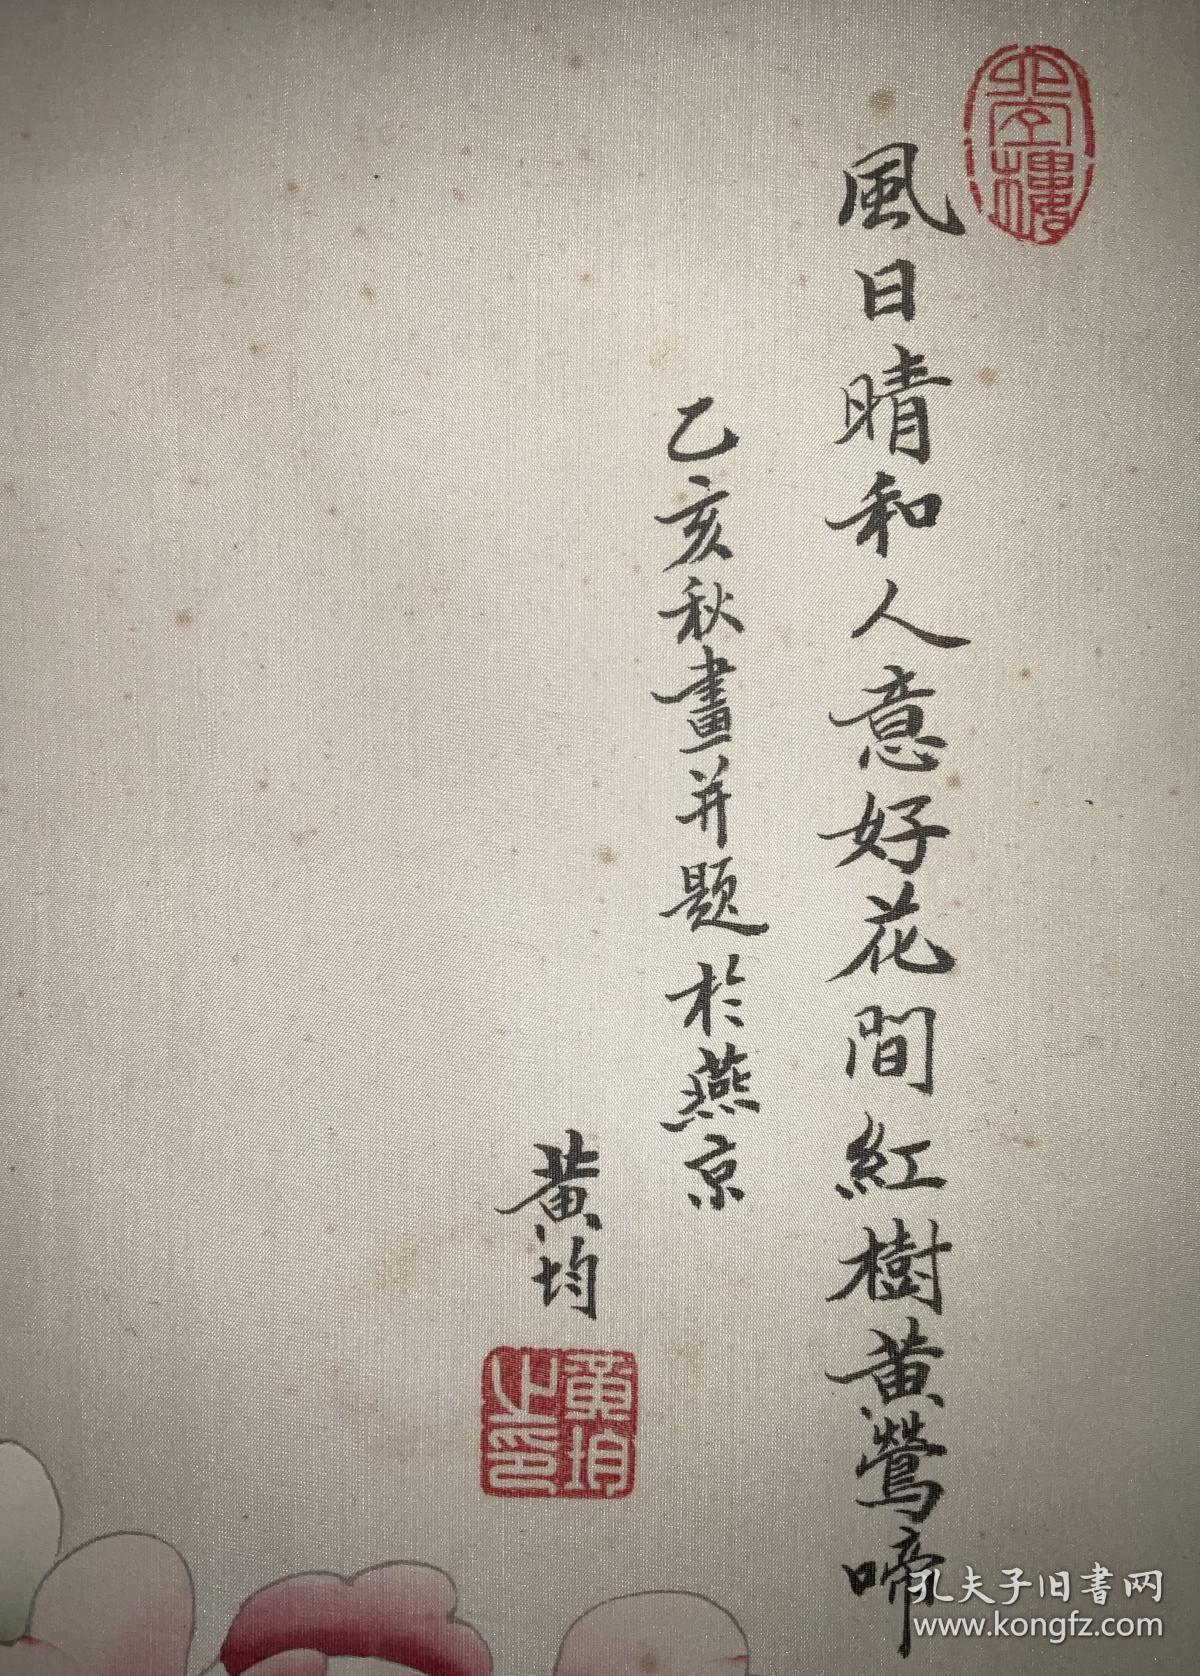 風日晴和人意好花間紅樹黃鶯啼
乙亥秋畫并題於燕京
黃均
黃均之印
孔夫子旧書网
www.kongfz.com